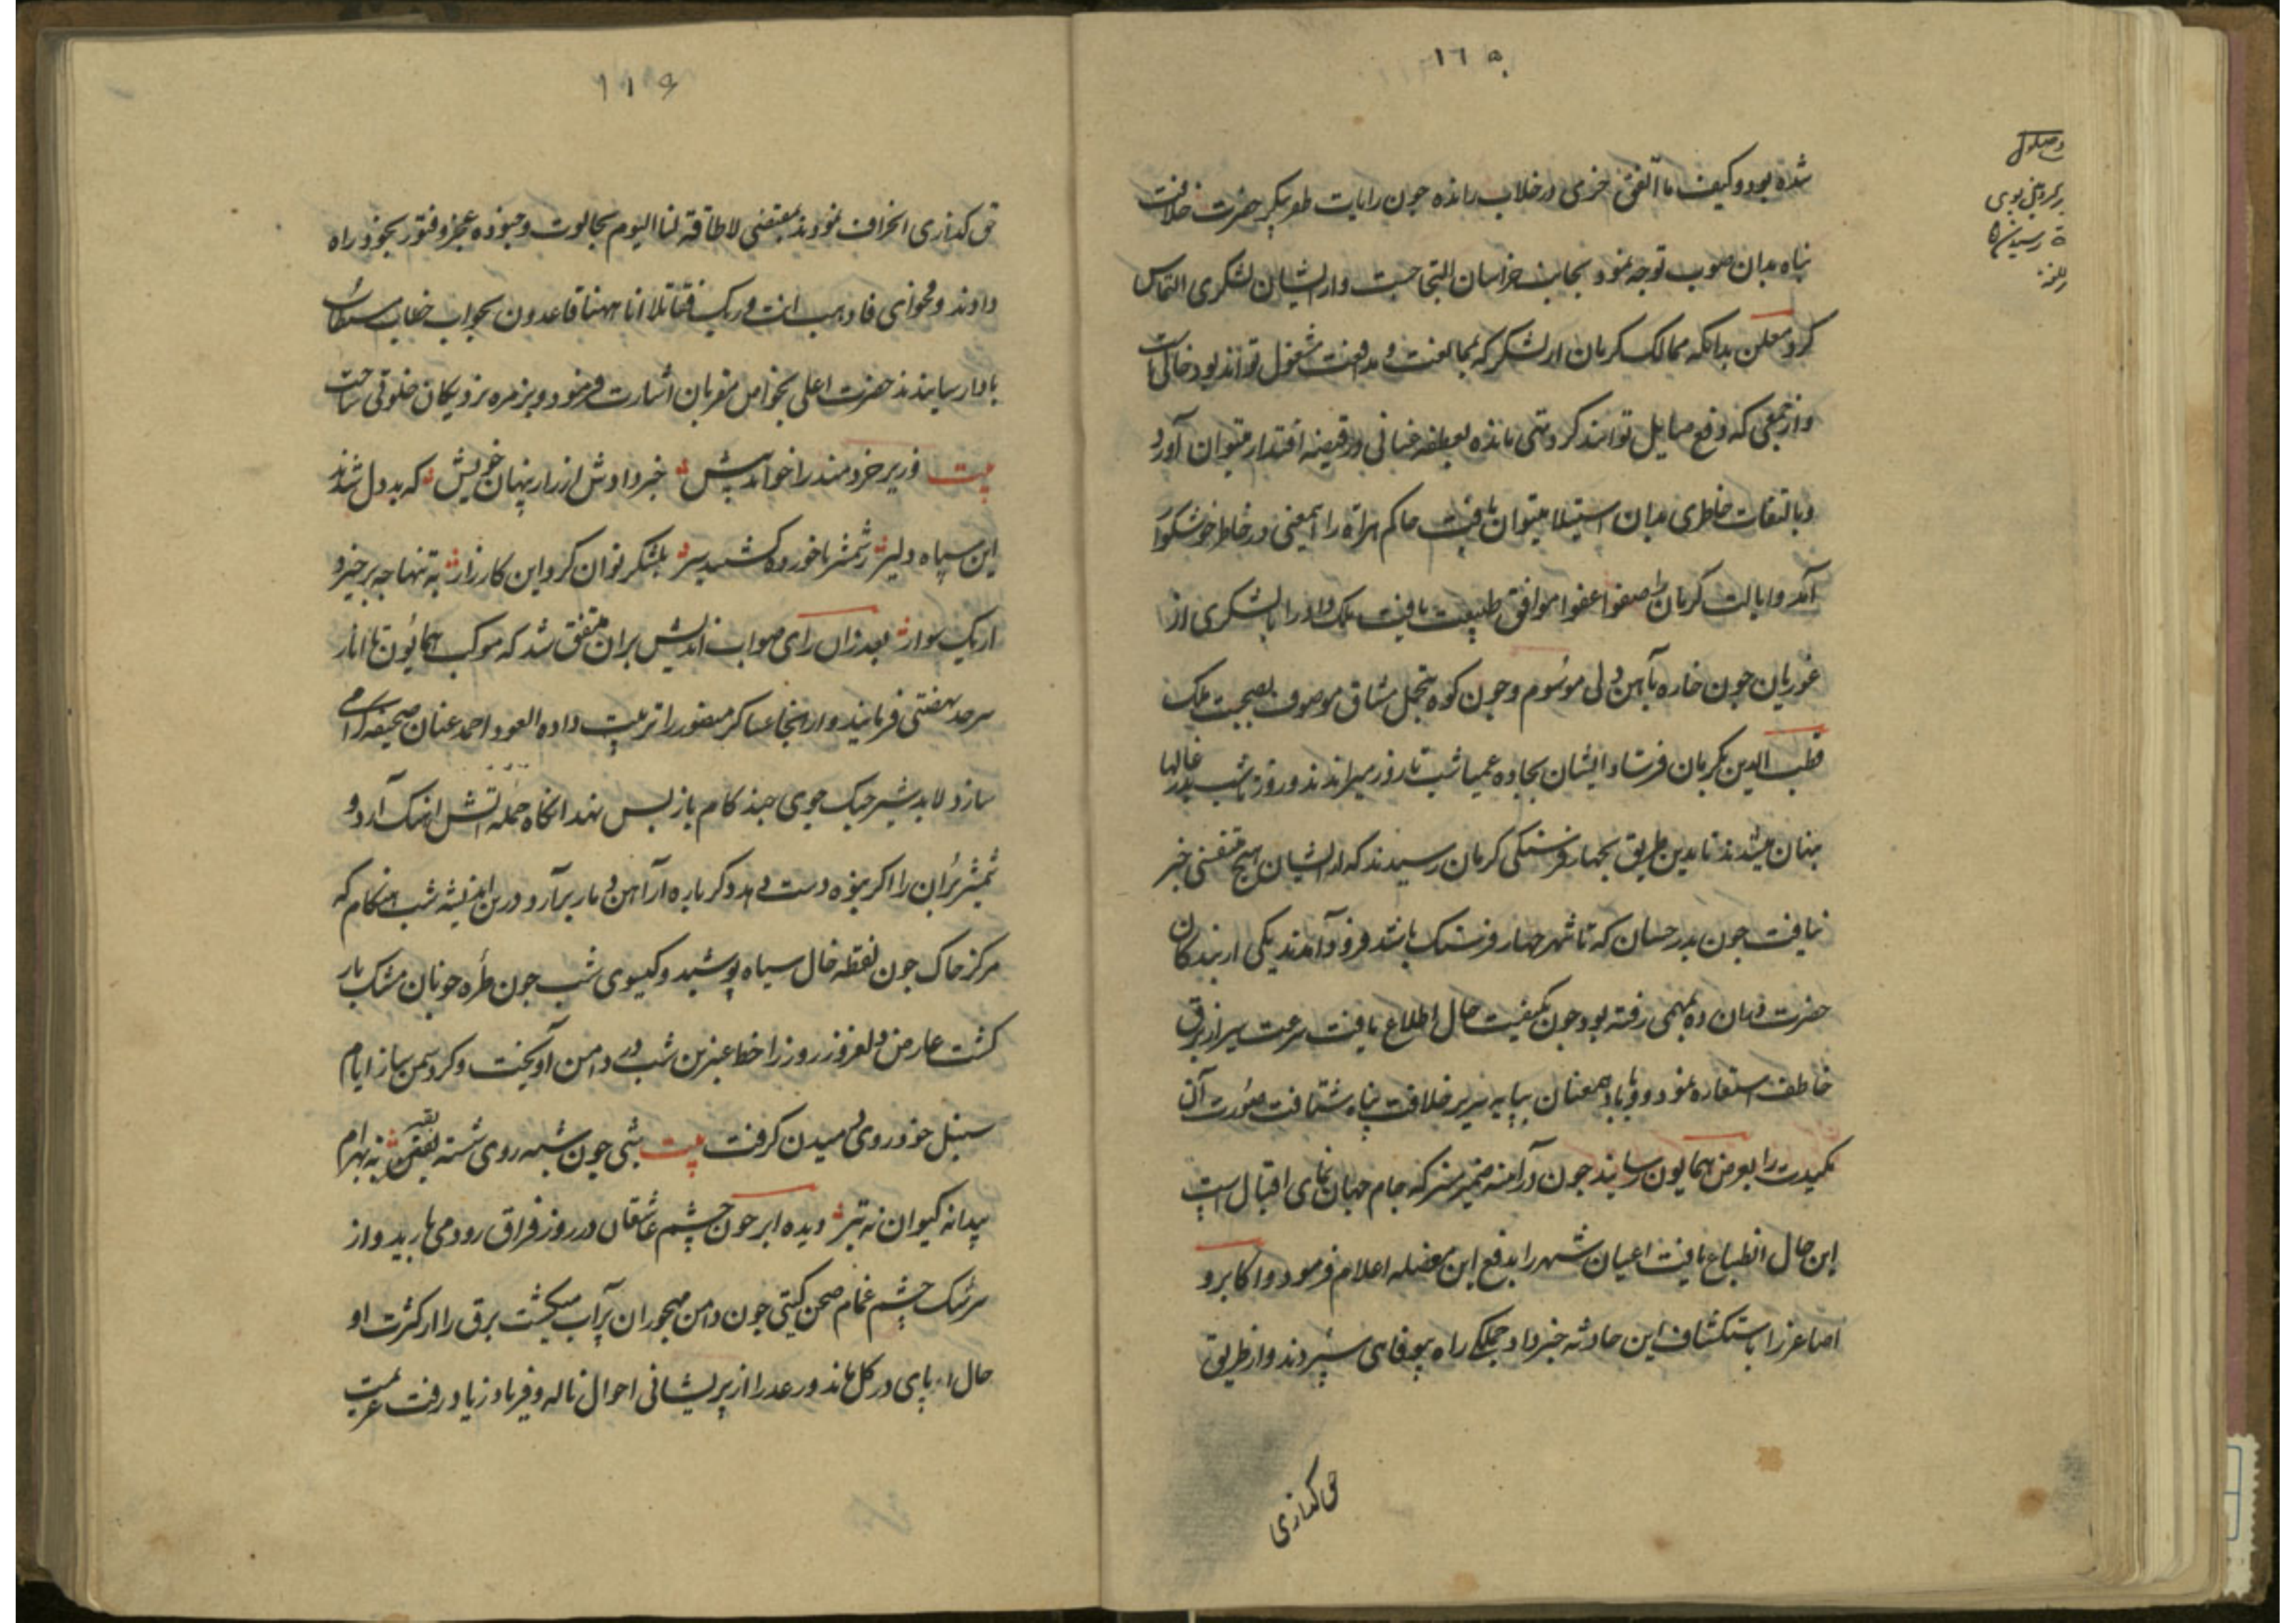 ١٦٥
شده بود و کیف ما اتفق خری در خلاب رانده جون رایات ظفر پیکر حضرت خلافت
پناه بدان صوب توجه نمود بجانب خراسان التجا جست و از ایشان لشکری التماس
کرد معلن بدانکه ممالک کرمان از لشکر که بممانعت و مدافعت مشغول تواند بود خالیست
و از جمعی که دفع صایل توانند کرد تهی مانده بعطفه عنانی در قبضه اقتدار میتوان آورد
و بالتفات خاطری بدان استیلا میتوان یافت حاکم هراة را این معنی در خاطر خوشکوار
آمد و ایالت کرمان را صفوا عفوا موافق طبیعت یافت ملک داد را با لشکری از
غوریان جون خاره بآهن دلی موسوم و جون کوه بتحمل مشاق موصوف بصحبت ملک
قطب الدین بکرمان فرستاد ایشان بجاده عمیا شب تا روز میراندند و روز تا شب در غالها
پنهان میشدند تا بدین طریق بچهار فرسنگی کرمان رسیدند که از ایشان هیچ متنفسی خبر
نیافت جون بدرحسان که تا شهر چهار فرسنک باشد فرود آمدند یکی از بندکان
حضرت دران ده بمهمی رفته بود جون بکیفیت حال اطلاع یافت سرعت سیر از برق
خاطف استعاره نمود و با باد همعنان بپایه سریر خلافت پناه شتافت صورت آن
مکیدت را بعرض همایون رسانید جون در آینه ضمیر منیر که جام جهان نمای اقبال است
این حال انطباع یافت اعیان شهر را بدفع این معضله اعلام فرمود و اکابر و
اصاغر را باستکشاف این حادثه خبر داد جملکی راه بیوفایی سپردند و از طریق
حق کذاری
١١٩
حق کذاری انحراف نمودند بمقتضی لا طاقة لنا الیوم بجالوت و جنوده عجز و فتور بخود راه
دادند و فحوای فاذهب انت و ربک فقاتلا انا ههنا قاعدون بجواب خطاب
بادا رسانیدند حضرت اعلی بخواص مقربان اشارت فرمود و بزمره نزدیکان خلوتی ساخت
بیت وزیر خردمند را خواند پیش خبر دادش از راز پنهان خویش که بددل شدند
این سپاه دلیر ز شمشیر ناخورده کشتند سیر بلشکر توان کرد این کارزار به تنها چه برخیزد
از یک سوار بعد ازان رای صواب اندیش بران متفق شد که موکب همایون تا انار
سرحد نهضتی فرمایند و از انجا عساکر منصور را ترتیب داده العود احمد عنوان صحیفه
سازد لابد شیر جنک جوی چند کام باز پس نهد انکاه حمله آتش اهنک آرد و
شمشیر بران را اکر نبوه دست دهد دکر باره از آهن دمار برآرد درین اندیشه شب هنکام که
مرکز خاک جون نقطه خال سیاه پوشید و کیسوی شب جون طره خوبان مشک بار
کشت عارض دلفروز روز را خط عنبرین شب در دامن آویخت و کرد سمن زار ایام
سنبل خود روی دمیدن کرفت بیت شبی جون شبه روی شسته بقیر نه بهرام
پیدا نه کیوان نه تیر دیده ابر جون چشم عاشقان در روز فراق رود می بارید و از
سرشک چشم غمام صحن کیتی جون دامن مهجوران پرآب میکشت برق را از کثرت او
حال پای در کل ماند و رعد را از پریشانی احوال ناله و فریاد زیاد رفت